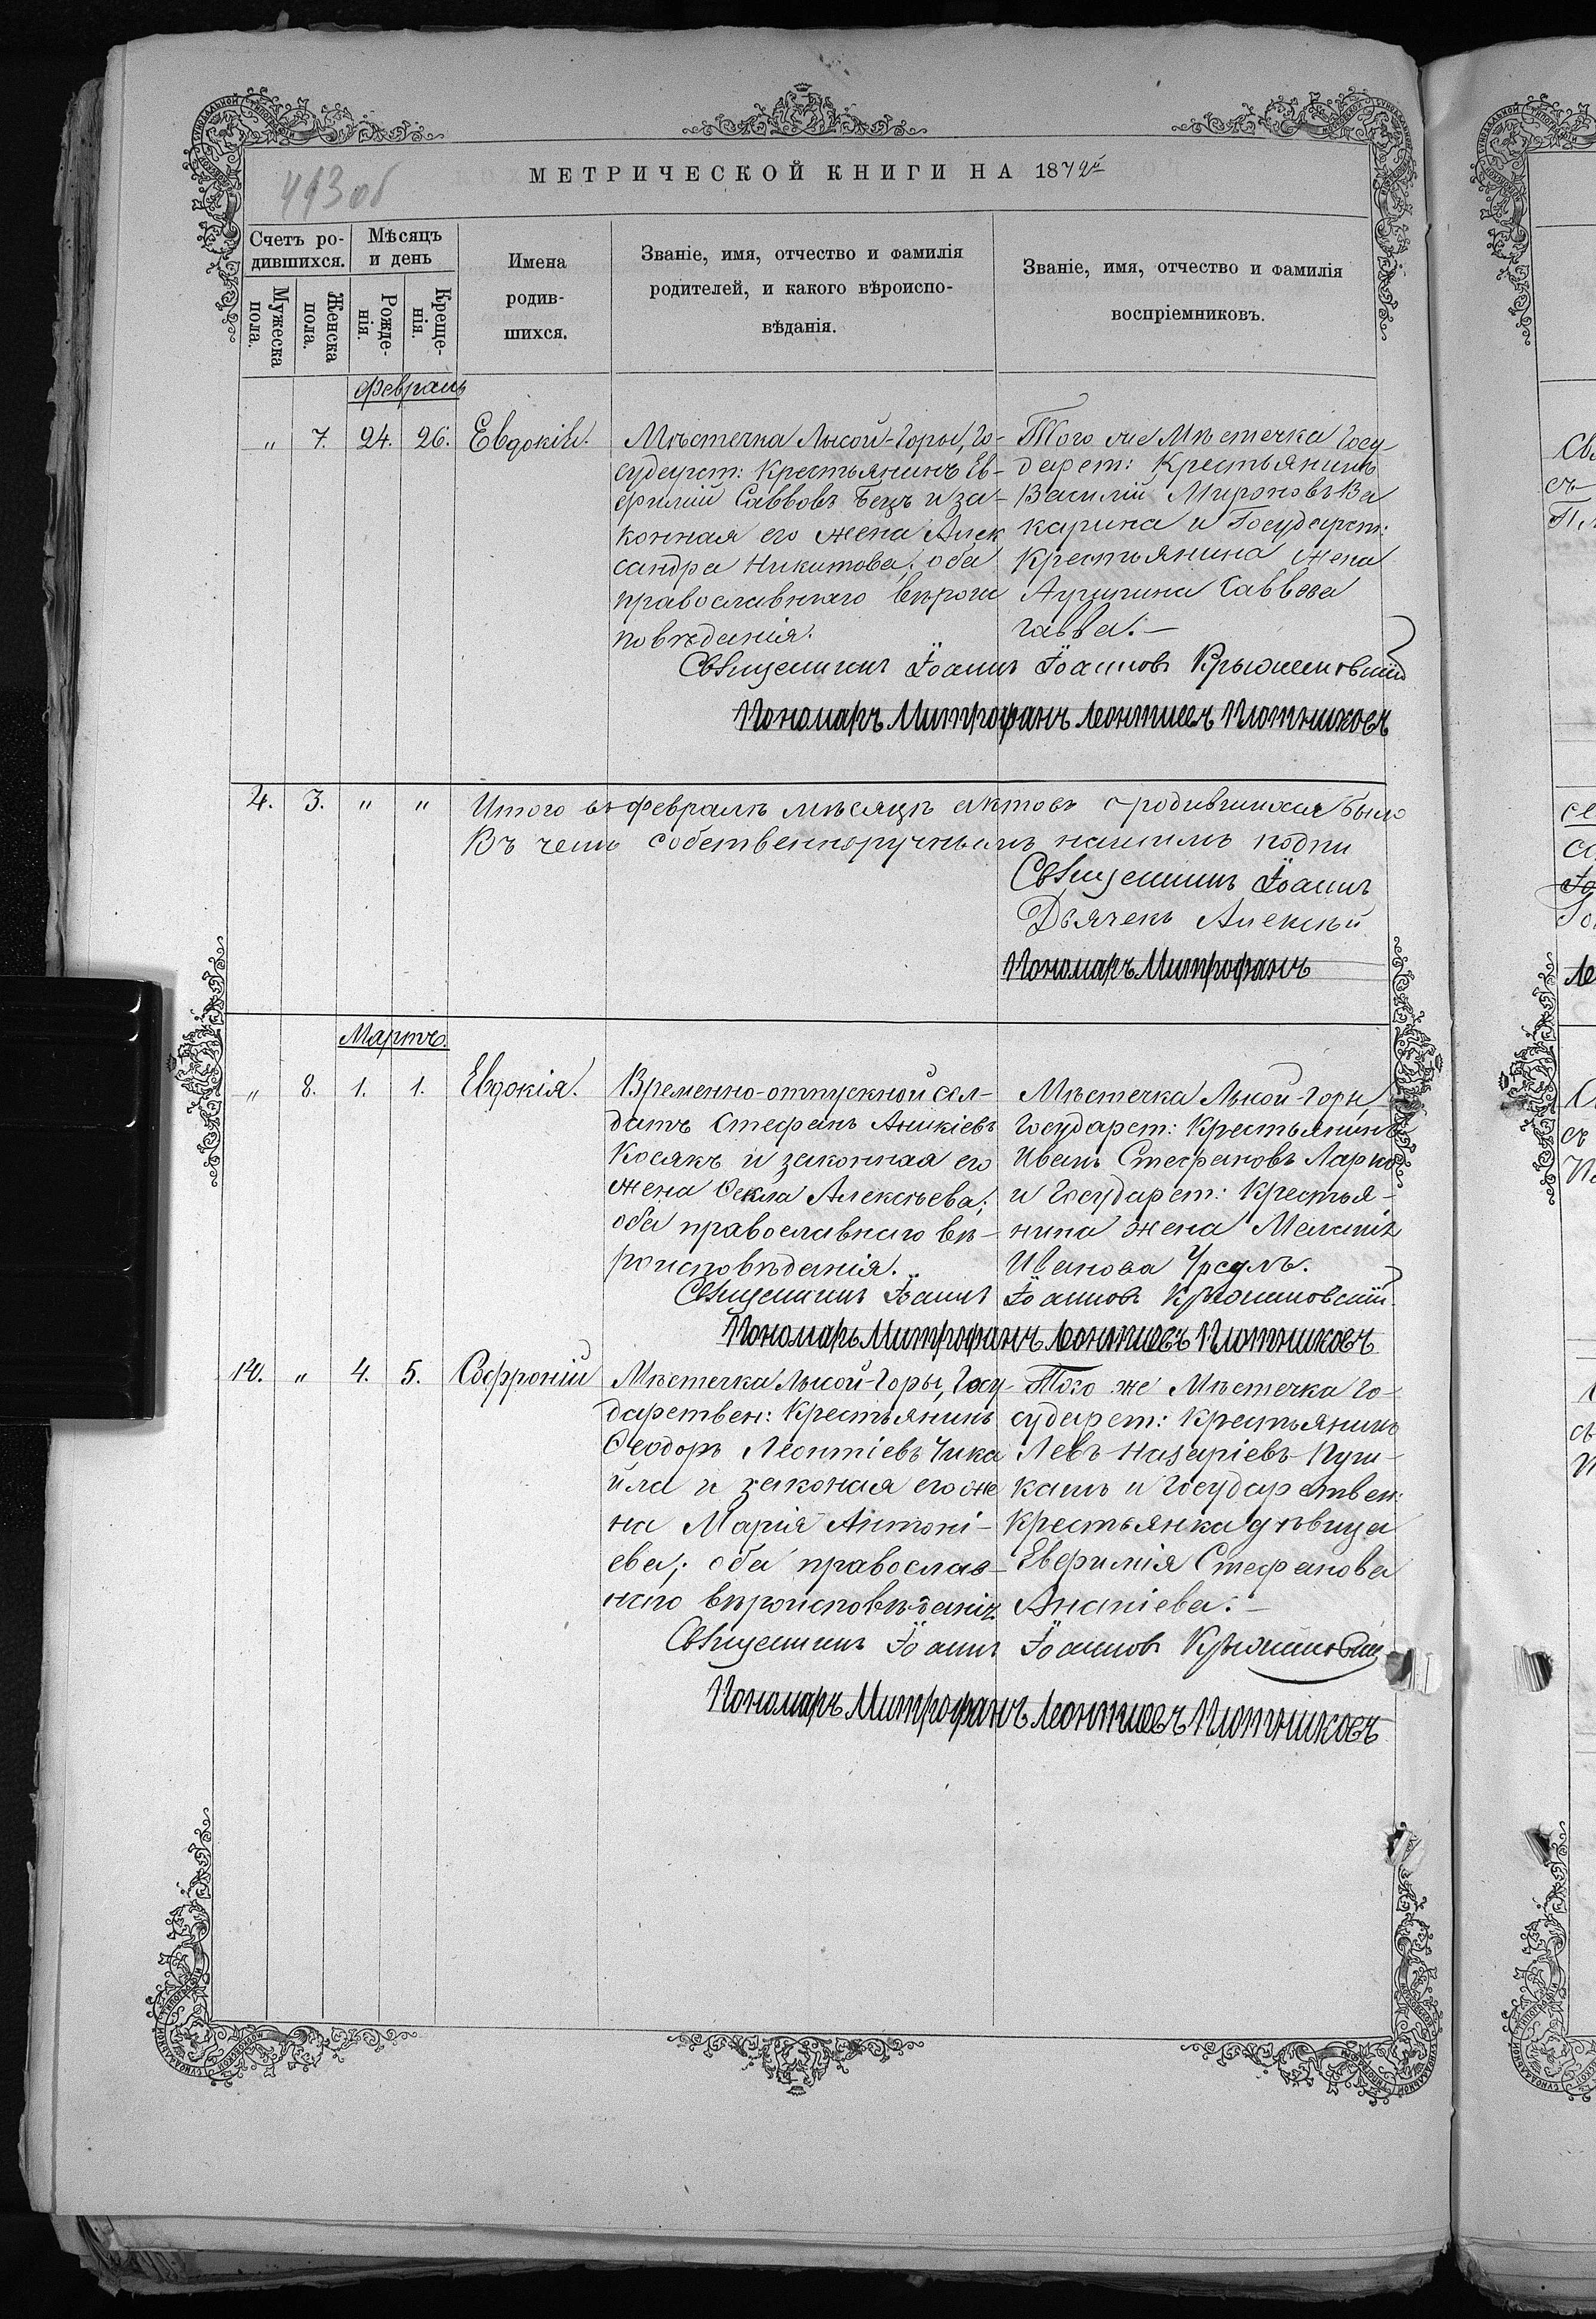 413 об
МЕТРИЧЕСКОЙ КНИГИ НА 1872й
Счетъ ро-
дившихся.
Мѣсяцъ
и день
Мужеска
пола.
Женска
пола.
Рожде-
нія.
Креще-
нія.
Имена
родив-
шихся.
Званіе, имя, отчество и фамилія
родителей, и какого вѣроиспо-
вѣданія.
Званіе, имя, отчество и фамилія
воспріемниковъ.
Февраль
" 7. 24. 26. Евдокія.
Мѣстечка Лысой-Горы, Го-
сударст: Крестьянинъ Ев-
фимій Саввовъ Бецъ и за-
конная его жена Алек
сандра Никитова; оба
православнаго вѣрои
повѣданія.
Того же Мѣстечка Госу-
дарст: Крестьянинъ
Василій Мироновъ Ва
карина и Государст:
Крестьянина жена
Агрипина Саввова
Священникъ Іоаннъ Іоанновъ Крыжановскій
Пономарь Митрофанъ Леонтиевъ Плотниковъ
4. 3. " " Итого въ Февралѣ мѣсяцѣ актовъ о родившихся было
Въ чемъ собственноручнымъ нашимъ подпи
Священникъ Іоаннъ
Дьячекъ Алексѣй
Пономарь Митрофанъ
Мартъ.
" 8. 1. 1. Евдокія.
Временно-отпускной сол-
датъ Стефанъ Аникіевъ
Косякъ и законная его
жена Ѳекла Алексѣева;
оба православнаго вѣ-
роисповѣданія.
Мѣстечка Лысой-Горы,
Государст: Крестьянинъ
Иванъ Стефановъ Ларко
и Государст: Крестья-
нина жена Меланія
Иванова Урсулъ.
Священникъ Іоаннъ Іоанновъ Крыжановскій.
Пономарь Митрофанъ Леонтиевъ Плотниковъ
10. " 4. 5. Софроній
Мѣстечка Лысой-Горы, Госу-
дарствен: Крестьянинъ
Ѳеодоръ Леонтіевъ Чика
йла и законая его же
на Марія Антоні-
ева; оба православ-
наго вѣроисповѣданія
Того же Мѣстечка Го-
сударст: Крестьянинъ
Левъ Назаріевъ
и Государствен:
Крестьянка дѣвица
Евфимія Стефанова
Ананіева.-
Священникъ Іоаннъ Іоанновъ Крыжановскій
Пономарь Митрофанъ Леонтиевъ Плотниковъ